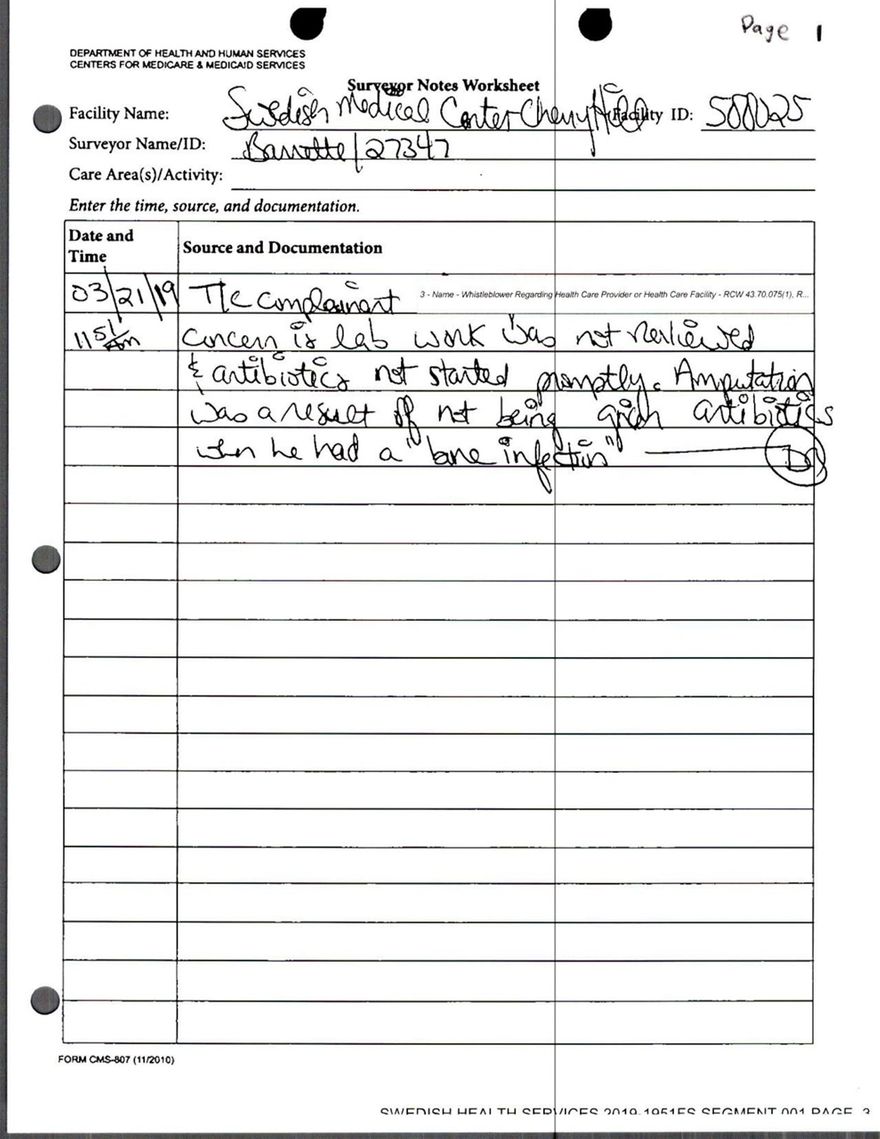 Page 1
DEPARTMENT OF HEALTH AND HUMAN SERVICES
CENTERS FOR MEDICARE & MEDICAID SERVICES
Surveyor Notes Worksheet
Facility Name: Swedish Medical Center Cherry Hill Facility ID: 500025
Surveyor Name/ID: Barrette/27347
Care Area(s)/Activity:
Enter the time, source, and documentation.
Date and Time
Source and Documentation
03/21/19 The complainant 3 - Name - Whistleblower Regarding Health Care Provider or Health Care Facility - RCW 43.70.075(1), R...
1151 Am concern is lab work was not reviewed
& antibiotics not started promptly. Amputation
was a result of not being given antibiotics
when he had a "bone infection"
FORM CMS-807 (11/2010)
SWEDISH HEALTH SERVICES 2019-1951FS SEGMENT 001 PAGE 3